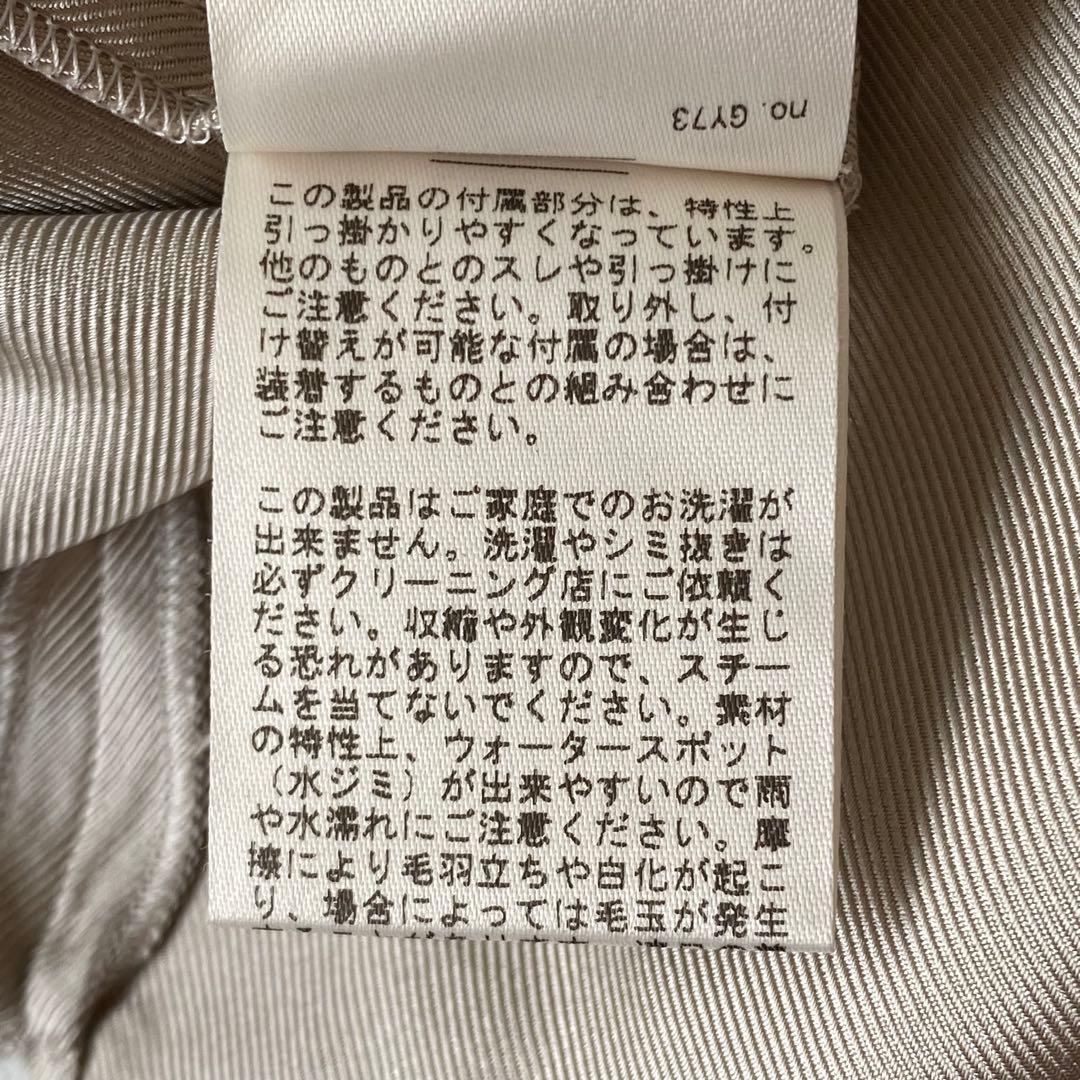 no. GY73
この製品の付属部分は、特性上
引っ掛かりやすくなっています。
他のものとのスレや引っ掛けに
ご注意ください。取り外し、付
け替えが可能な付属の場合は、
装着するものとの組み合わせに
ご注意ください。
この製品はご家庭でのお洗濯が
出来ません。洗濯やシミ抜きは
必ずクリーニング店にご依頼く
ださい。収縮や外観変化が生じ
る恐れがありますので、スチー
ムを当てないでください。素材
の特性上、ウォータースポット
(水ジミ)が出来やすいので雨
や水濡れにご注意ください。摩
擦により毛羽立ちや白化が起こ
り、場合によっては毛玉が発生